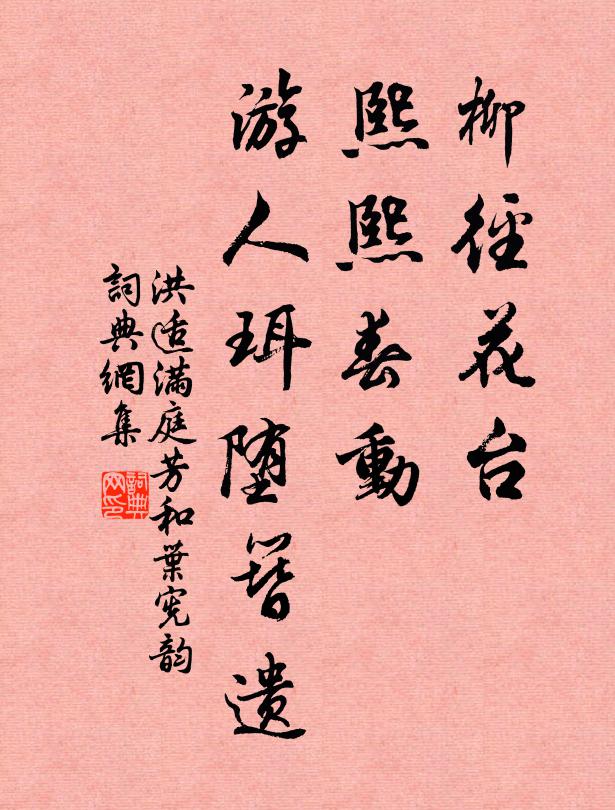 柳径花台
熙熙春動
游人珥堕簪遗
洪适满庭芳和葉宪韵
詞典網集
詞典网印